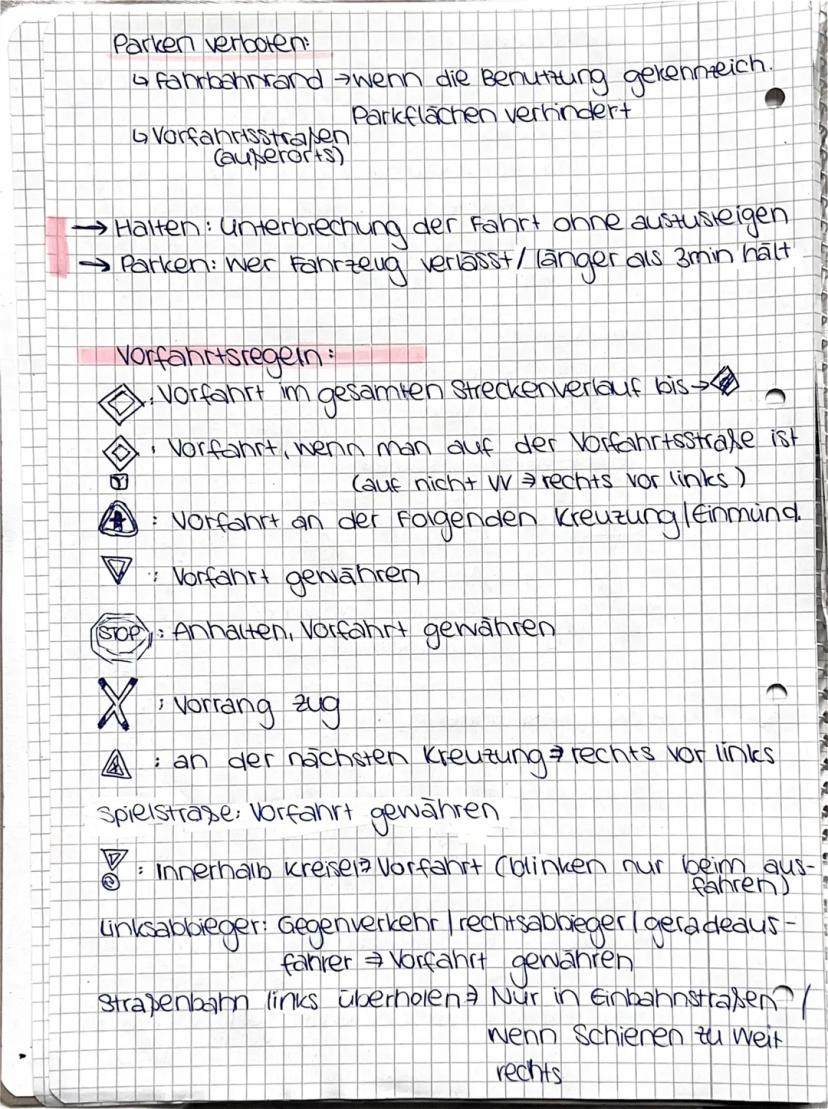 Parken verboten:
↳ Fahrbahnrand → wenn die Benutzung gekennzeich.
Parkflächen verhindert
↳ Vorfahrtsstraßen
(außerorts)
→ Halten: Unterbrechung der Fahrt ohne auszusteigen
→ Parken: wer Fahrzeug verlässt / länger als 3min hält
Vorfahrtsregeln:
: Vorfahrt im gesamten Streckenverlauf bis →
: Vorfahrt, wenn man auf der Vorfahrtsstraße ist
(auf nicht VV ⇒ rechts vor links)
: Vorfahrt an der folgenden Kreuzung/Einmünd.
: Vorfahrt gewähren
STOP : Anhalten, Vorfahrt gewähren
: Vorrang Zug
: an der nächsten Kreuzung ⇒ rechts vor links
Spielstraße: Vorfahrt gewähren
: Innerhalb Kreisel ⇒ Vorfahrt (blinken nur beim aus-
fahren)
Linksabbieger: Gegenverkehr / rechtsabbieger / geradeaus-
fahrer ⇒ Vorfahrt gewähren
Straßenbahn links überholen ⇒ Nur in Einbahnstraßen /
wenn Schienen zu weit
rechts